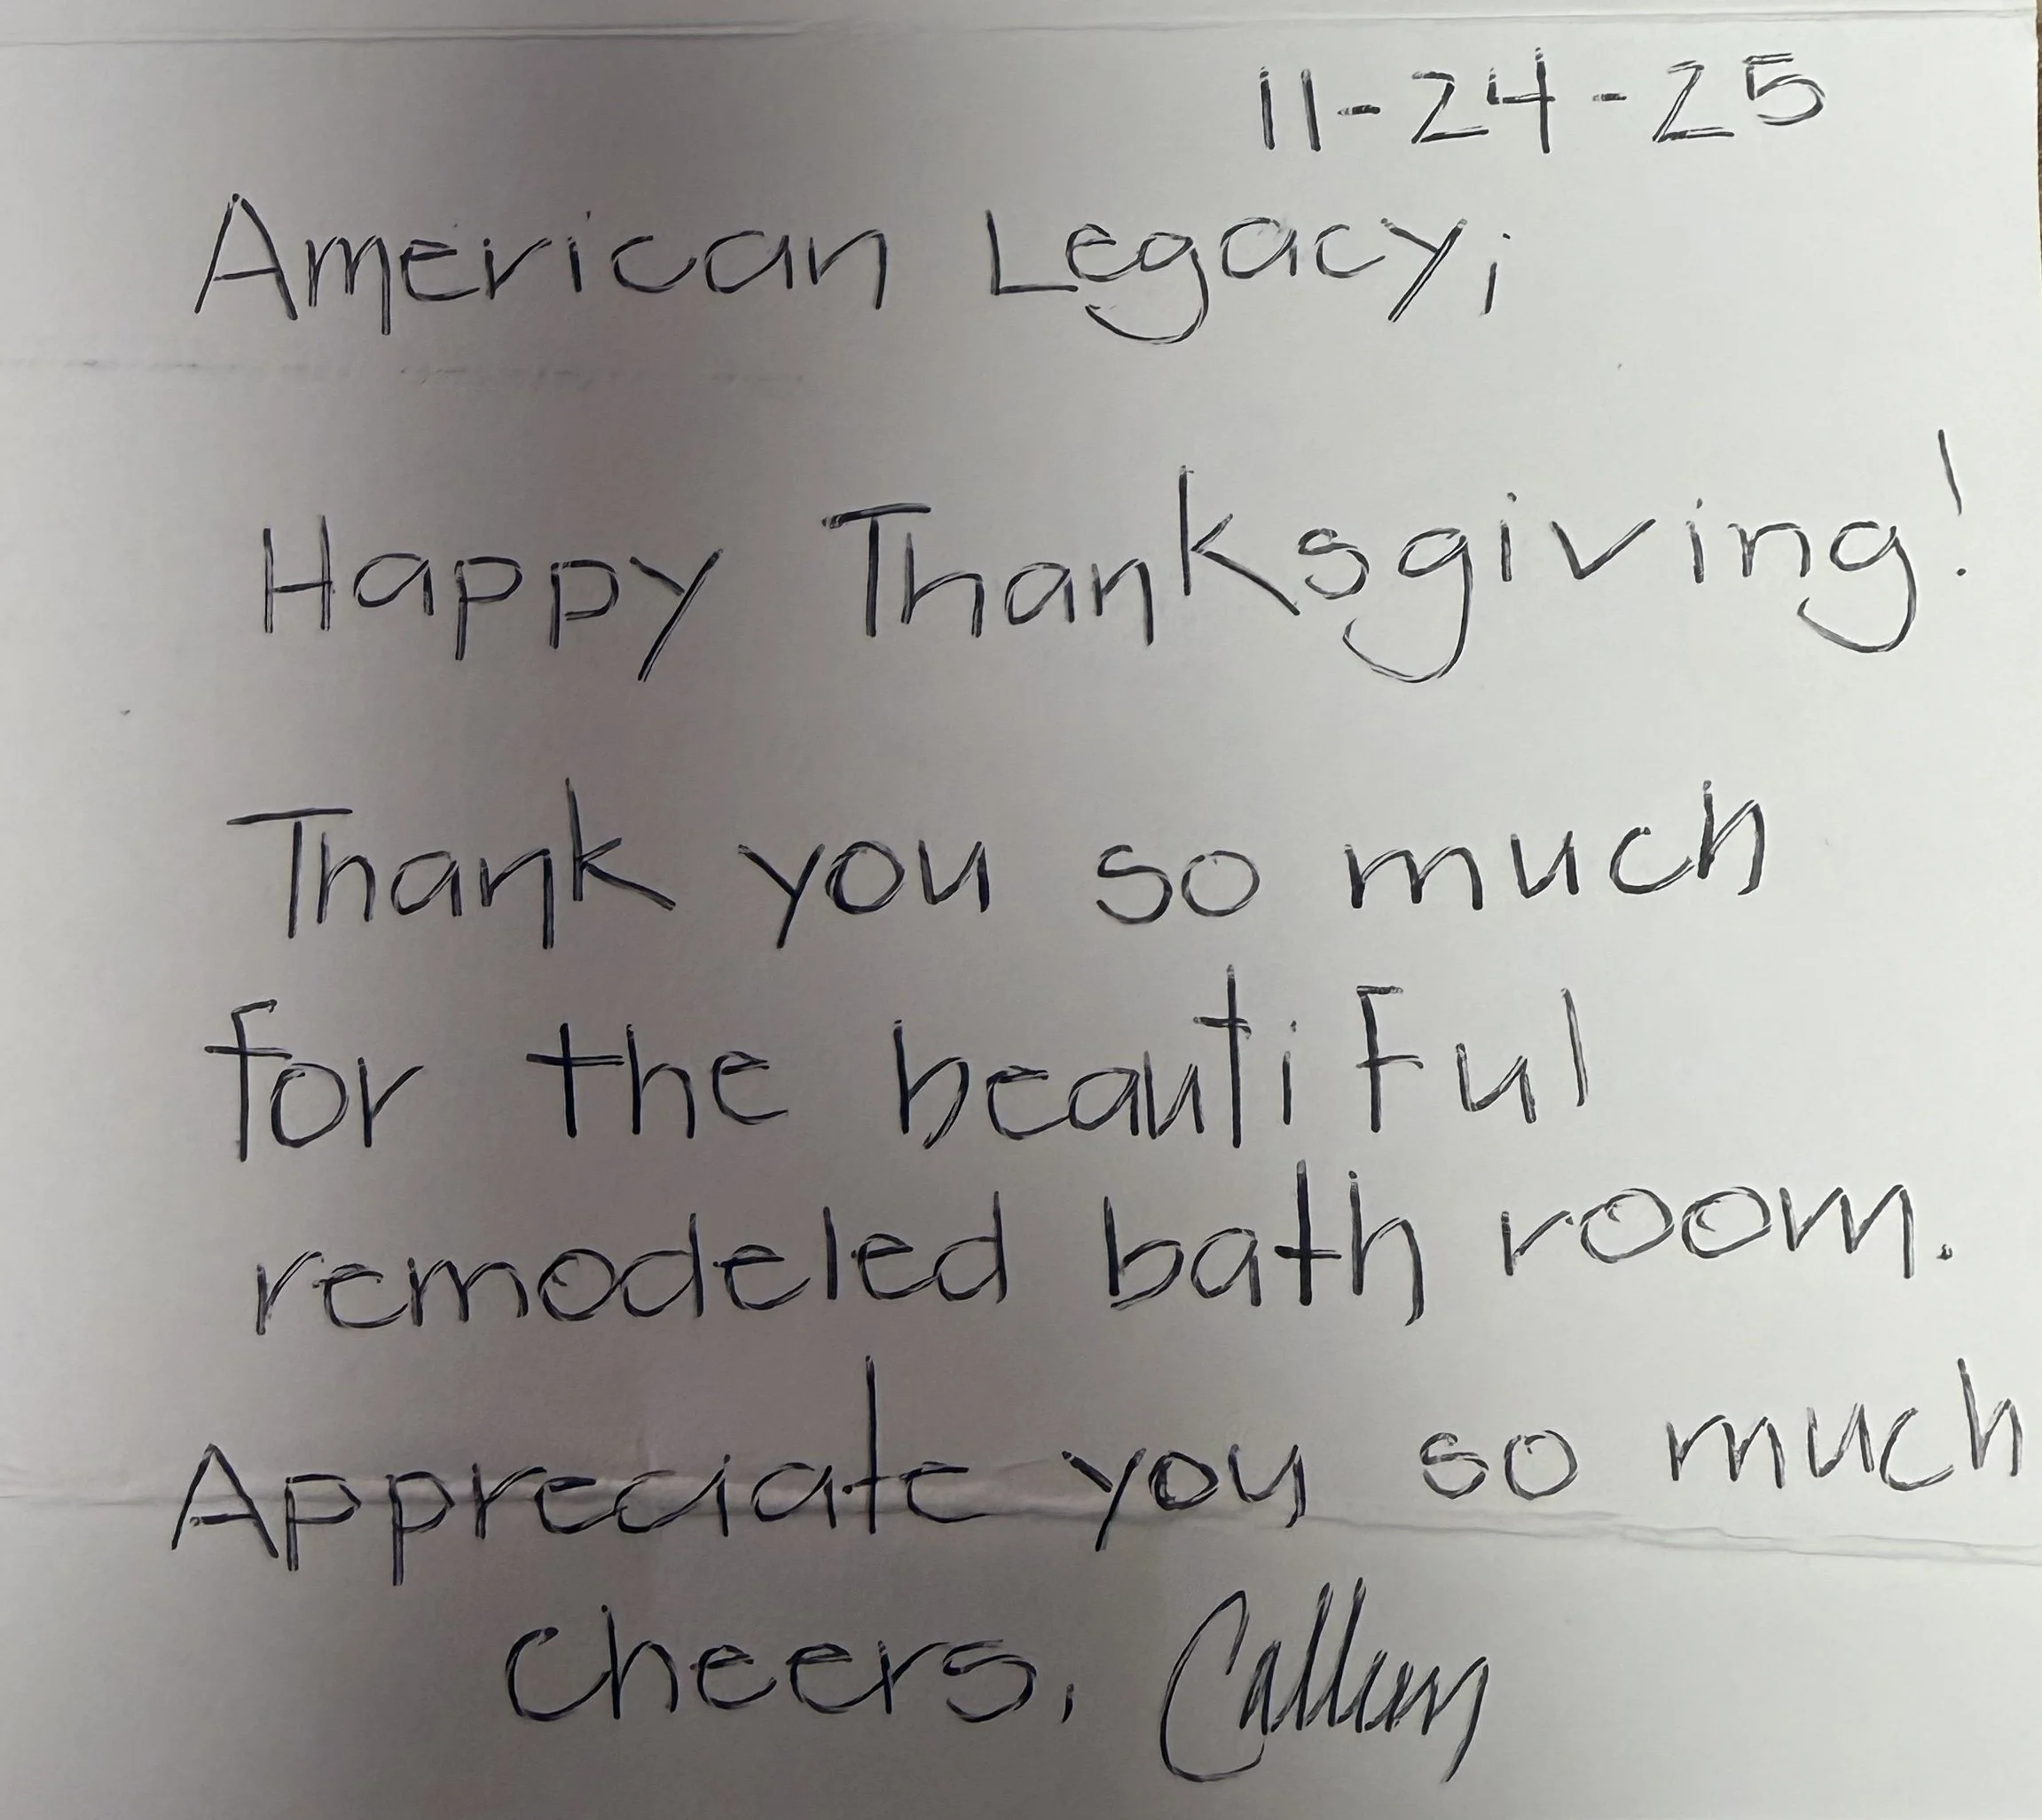 11-24-25
American Legacy;
Happy Thanksgiving!
Thank you so much
for the beautiful
remodeled bath room.
Appreciate you so much
cheers, Callum